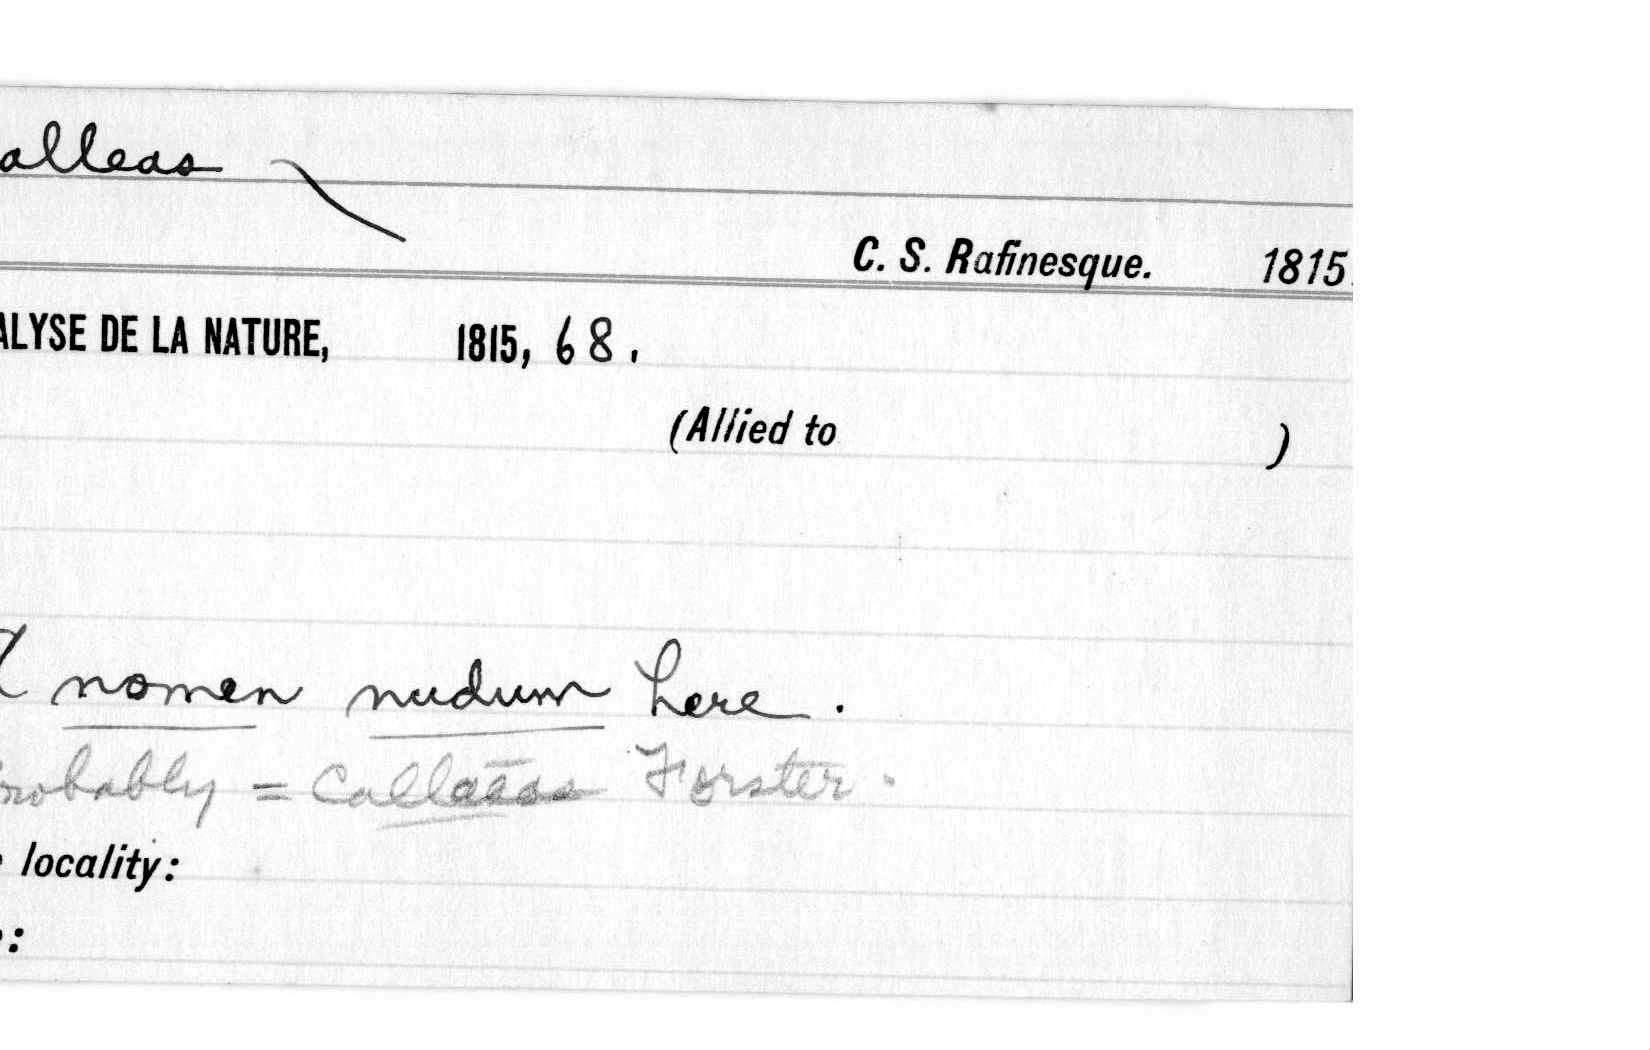 alleas
C. S. Rafinesque. 1815.
ALYSE DE LA NATURE, 1815, 68.
(Allied to )
A nomen nudum here.
robably = Callaeas Forster.
locality:
: